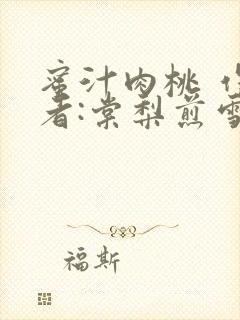 蜜汁肉桃 作
者:棠梨煎雪
福斯